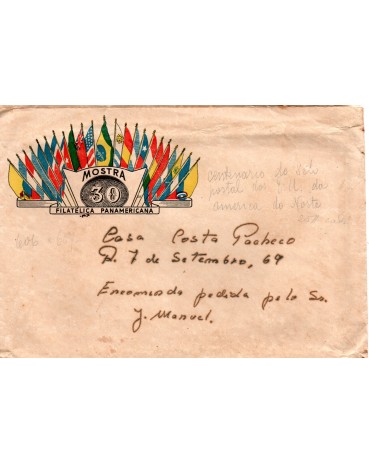 MOSTRA
30
FILATÉLICA PANAMERICANA
centenario do
postal dos E. U. da
America do Norte
Casa Costa Pacheco
R. 7 de Setembro, 69
Encomenda pedida pelo Sr.
J. Manuel.